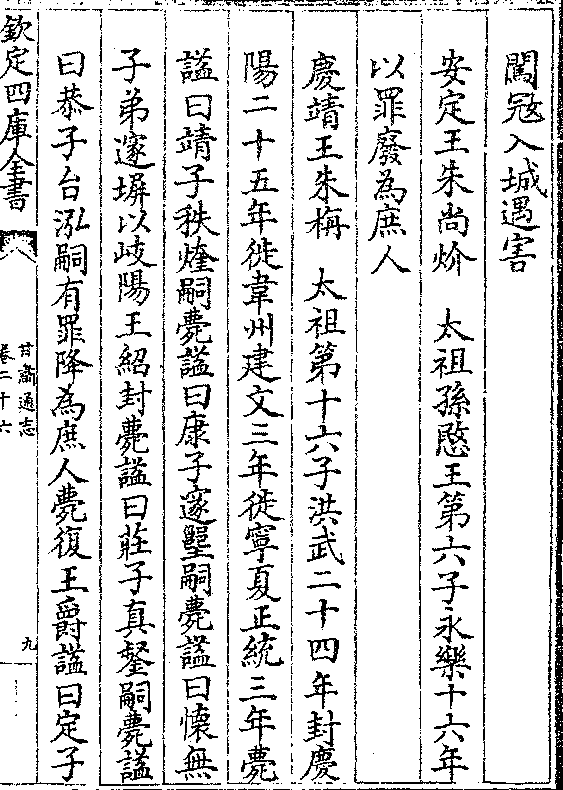 闖寇入城遇害
安定王朱尚炌　太祖孫愍王第六子永樂十六年
以罪廢為庶人
慶靖王朱栴　太祖第十六子洪武二十四年封慶
陽二十五年徙韋州建文三年徙寧夏正統三年薨
諡曰靖子秩煃嗣薨諡曰康子邃塁嗣薨諡曰懐無
子弟邃塀以岐陽王紹封薨諡曰莊子真鐅嗣薨諡
曰恭子台泓嗣有罪降為庶人薨復王爵諡曰定子
欽定四庫全書
甘肅通志
卷二十六
九